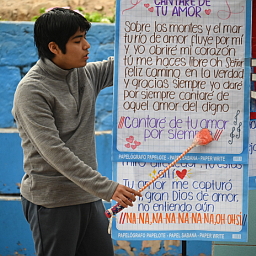 CANTARE DE
TU AMOR
Sobre los montes y el mar
tu río de amor fluye por mí
y yo abriré mi corazón
tú me haces libre oh Señor
feliz camino en la verdad
y gracias siempre yo daré
por siempre cantaré de
aquel amor del digno
¡Cantaré de tu amor
por siem
PAPELÓGRAFO PAPELOTE - PAPEL SABANA - PAPER WRITE
Tu amor me capturó
gran Dios de amor,
no entiendo aún
¡¡NA NA, NA NA NA NA NA, OH OH!!
PAPELÓGRAFO PAPELOTE - PAPEL SABANA - PAPER WRITE